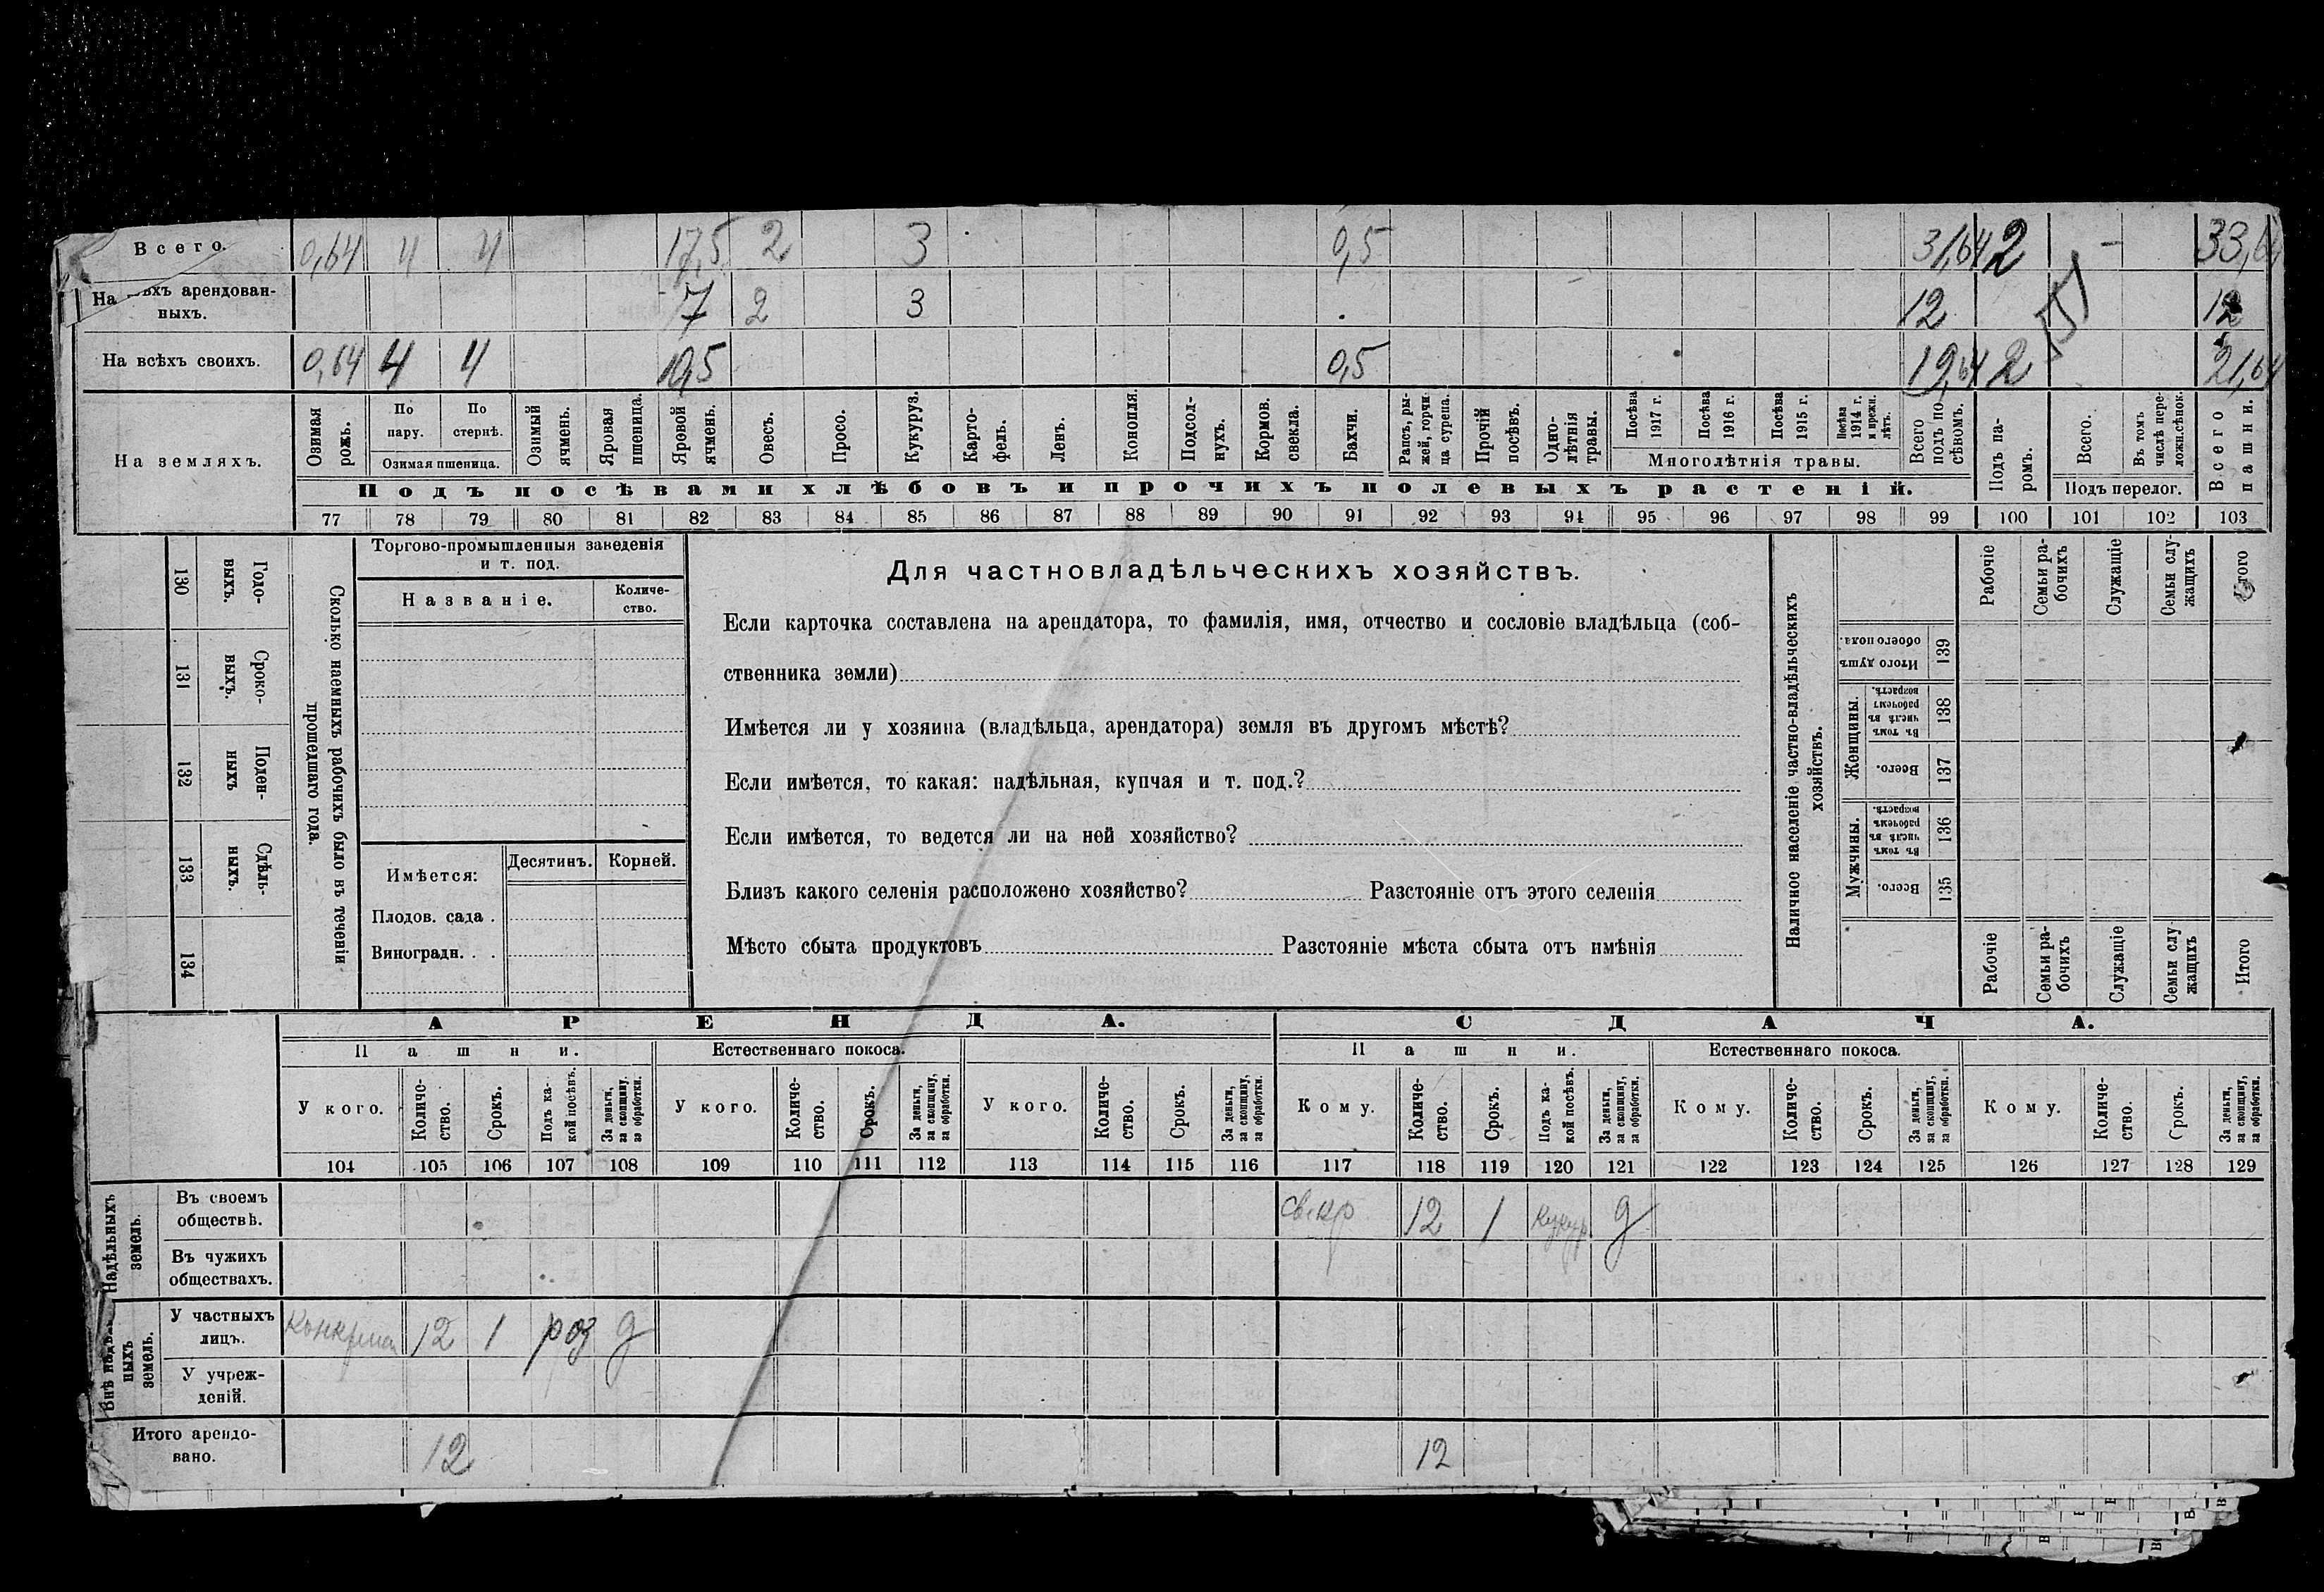 Всего. 0,64 4 4 17,5 2 3 0,5 31,64 2 - 33,64
На арендован-
ныхъ. 7 2 3 12 12
На всѣхъ своихъ. 0,64 4 4 10,5 0,5 19,64 2 21,64
На земляхъ.
Озимая рожь.
По пару.
По стернѣ.
Озимая пшеница.
Озимый ячмень.
Яровая пшеница.
Яровой ячмень.
Овесъ.
Просо.
Кукуруз.
Карто-
фель.
Ленъ.
Конопля.
Подсол-
нухъ.
Кормов. свекла.
Бахчи.
Рапсъ, ры-
жей, горчи-
ца сурепа.
Прочій посѣвъ.
Одно-
лѣтнія травы.
Посѣва 1917 г.
Посѣва 1916 г.
Посѣва 1915 г.
Посѣва 1914 г. и прежн. лѣтъ.
Многолѣтнія травы.
Всего подъ по-
сѣвомъ.
Подъ па-
ромъ.
Всего.
Въ томъ числѣ пере-
ложн.сѣнок.
Подъ перелог.
Всего пашни.
Подъ посѣвами хлѣбовъ и прочихъ полевыхъ растеній.
77 78 79 80 81 82 83 84 85 86 87 88 89 90 91 92 93 94 95 96 97 98 99 100 101 102 103
130 Годо-
выхъ.
131 Сроко-
выхъ.
132 Поден-
ныхъ
133 Сдѣль-
ныхъ.
134
Сколько наемныхъ рабочихъ было въ теченіи
прошедшаго года.
Торгово-промышленныя заведенія
и т. под.
Названіе.
Количе-
ство.
Имѣется:
Десятинъ. Корней.
Плодов. сада .
Виноградн. . .
Для частновладѣльческихъ хозяйствъ.
Если карточка составлена на арендатора, то фамилія, имя, отчество и сословіе владѣльца (соб-
ственника земли)
Имѣется ли у хозяина (владѣльца, арендатора) земля въ другомъ мѣстѣ?
Если имѣется, то какая: надѣльная, купчая и т. под.?
Если имѣется, то ведется ли на ней хозяйство?
Близъ какого селенія расположено хозяйство? Разстояніе отъ этого селенія
Мѣсто сбыта продуктовъ Разстояніе мѣста сбыта отъ имѣнія
Наличное населеніе частно-владѣльческихъ
хозяйствъ.
Рабочіе
Семьи ра-
бочихъ
Служащіе
Семьи слу-
жащихъ
Итого
Итого душъ обоего пола. 139
Женщины.
Въ томъ числѣ въ рабочемъ возрастѣ. 138
Всего. 137
Мужчины.
Въ томъ числѣ въ рабочемъ возрастѣ. 136
Всего. 135
Рабочіе
Семьи ра-
бочихъ
Служащіе
Семьи слу
жащихъ
Итого
АРЕНДА. СДАЧА.
Пашни. Естественнаго покоса. Пашни. Естественнаго покоса.
У кого.
Количе-
ство.
Срокъ.
Подъ ка-
кой посѣвъ.
За деньги, за скопщину, за обработки.
У кого.
Количе-
ство.
Срокъ.
За деньги, за скопщину, за обработки.
У кого.
Количе-
ство.
Срокъ.
За деньги, за скопщину, за обработки.
Кому.
Количе-
ство.
Срокъ.
Подъ ка-
кой посѣвъ.
За деньги, за скопщину, за обработки.
Кому.
Количе-
ство.
Срокъ.
За деньги, за скопщину, за обработки.
Кому.
Количе-
ство.
Срокъ.
За деньги, за скопщину, за обработки.
104 105 106 107 108 109 110 111 112 113 114 115 116 117 118 119 120 121 122 123 124 125 126 127 128 129
Надѣльныхъ земель.
Въ своемъ
обществѣ. 12 1 кукур. д
Въ чужихъ
обществахъ.
Внѣ
ныхъ земель.
У частныхъ
лицъ. 12 1 роз д
У учреж-
деній.
Итого арендо-
вано. 12 12